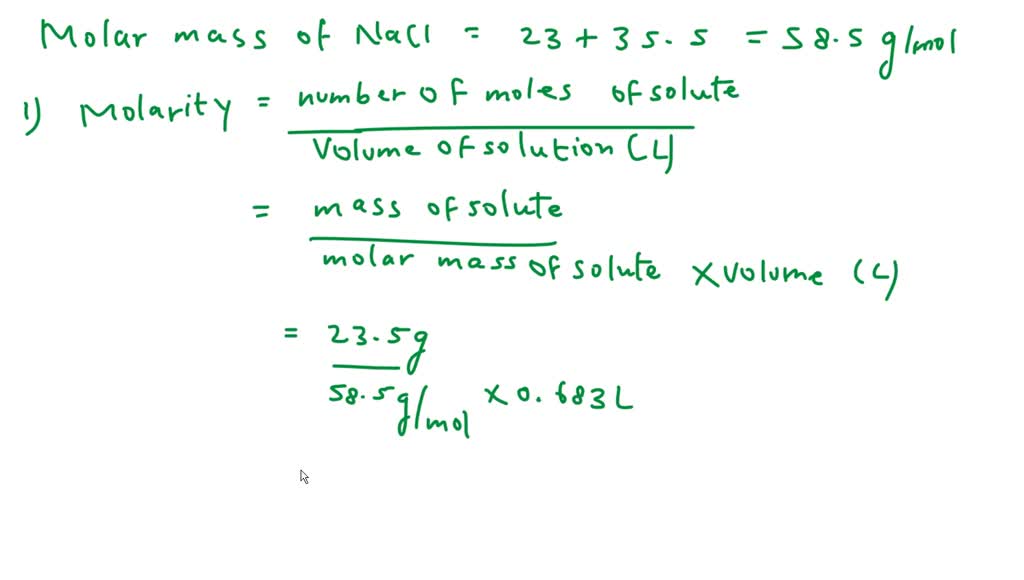 Molar mass of NaCl = 23 + 35.5 = 58.5 g/mol
1) Molarity = number of moles of solute
Volume of solution (L)
= mass of solute
molar mass of solute x volume (L)
= 23.5g
58.5g/mol x 0.683L